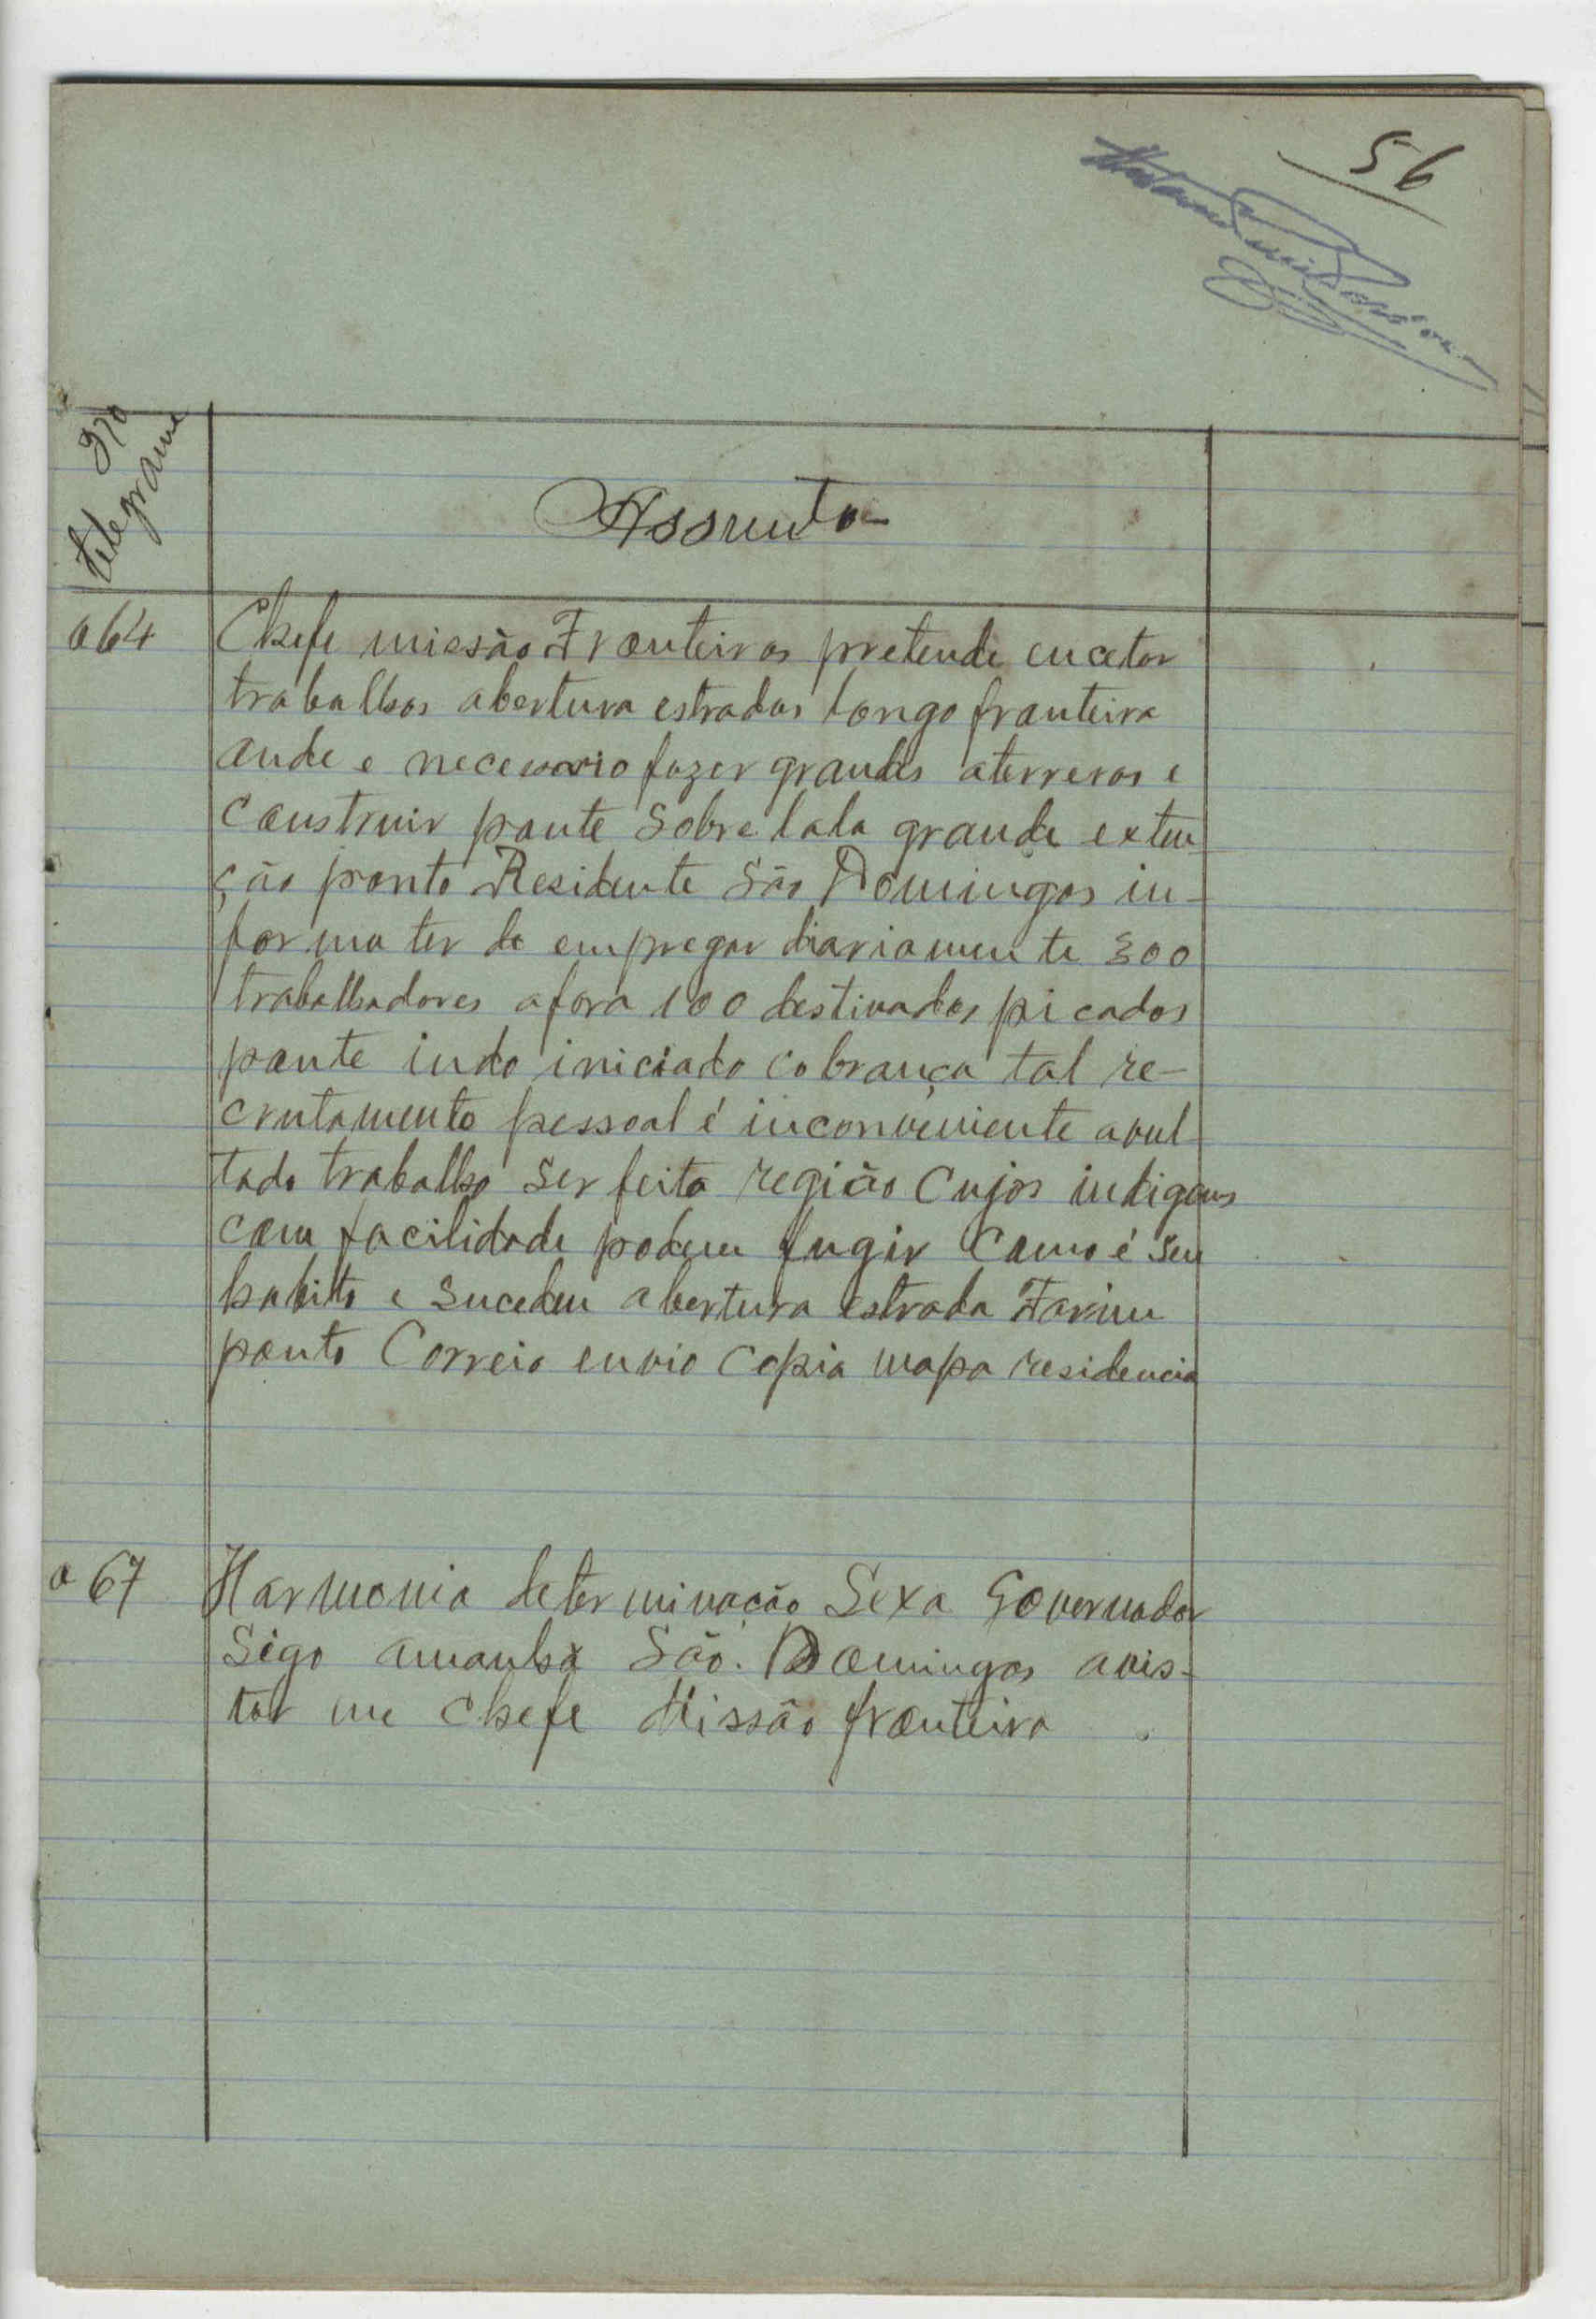 56
No telegrama
Assunto
a 64 Chefe missão Fronteiras pretende encetar
trabalhos abertura estradas longo fronteira
onde e necessario fazer grandes aterreros e
construir ponte sobre lala grande exten
ção ponto Residente São Domingos in-
forma ter de empregar diariamente 300
trabalhadores afora 100 destinados picadas
ponte indo iniciado cobrança tal re-
crutamento pessoal é inconveniente avul
tado trabalho ser feito região cujos indigenas
com facilidade podem fugir como é seu
habito e sucedeu abertura estrada Farim
ponto Correio envio copia mapa residencia
a 67 Harmonia determinação Sexa Governador
Sigo amanhã São Domingos avis-
tar me chefe Missão fronteira